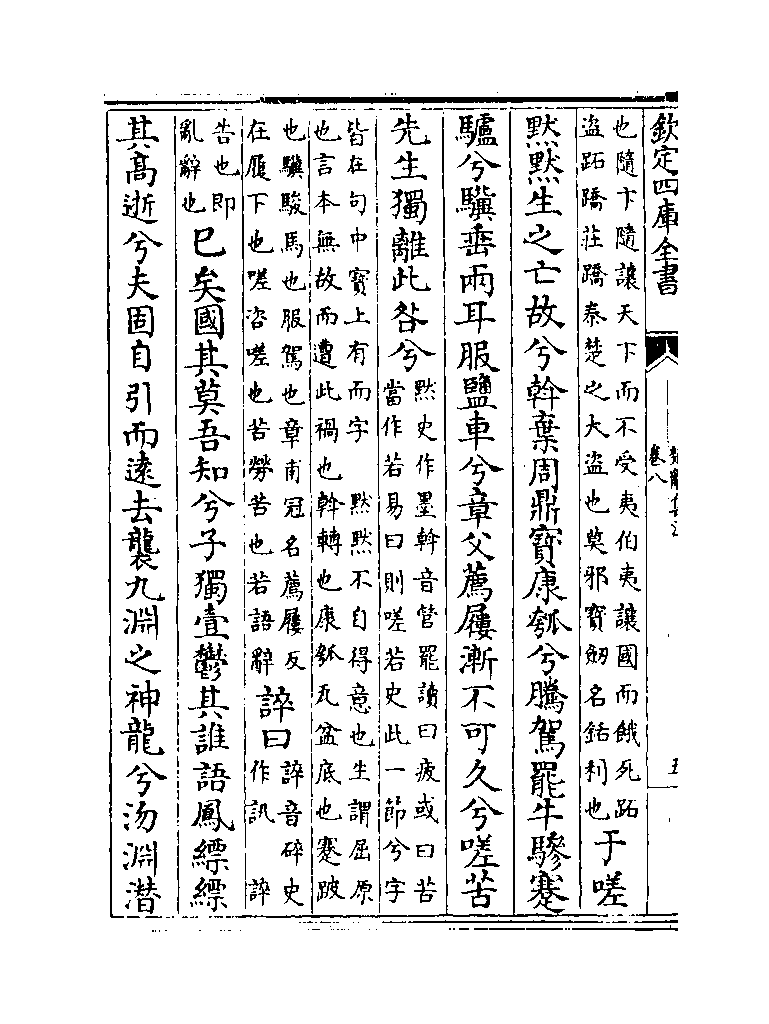 欽定四庫全書
卷八
五
也隨卞隨讓天下而不受夷伯夷讓國而餓死跖
盗跖蹻莊蹻秦楚之大盗也莫邪寳劒名銛利也
于嗟
黙黙生之亡故兮斡棄周鼎寳康瓠兮騰駕罷牛驂蹇
驢兮驥垂兩耳服鹽車兮章父薦屨漸不可久兮嗟苦
先生獨離此咎兮
黙史作墨斡音管罷讀曰疲或曰苦
當作若易曰則嗟若史此一節兮字
皆在句中寳上有而字　黙黙不自得意也生謂屈原
也言本無故而遭此禍也斡轉也康瓠瓦盆底也蹇跛
也驥駿馬也服駕也章甫冠名薦屨反
在履下也嗟咨嗟也苦勞苦也若語辭
誶曰
誶音碎史
作訊　誶
告也即
亂辭也
已矣國其莫吾知兮子獨壹鬱其誰語鳳縹縹
其髙逝兮夫固自引而遠去襲九淵之神龍兮沕淵潛